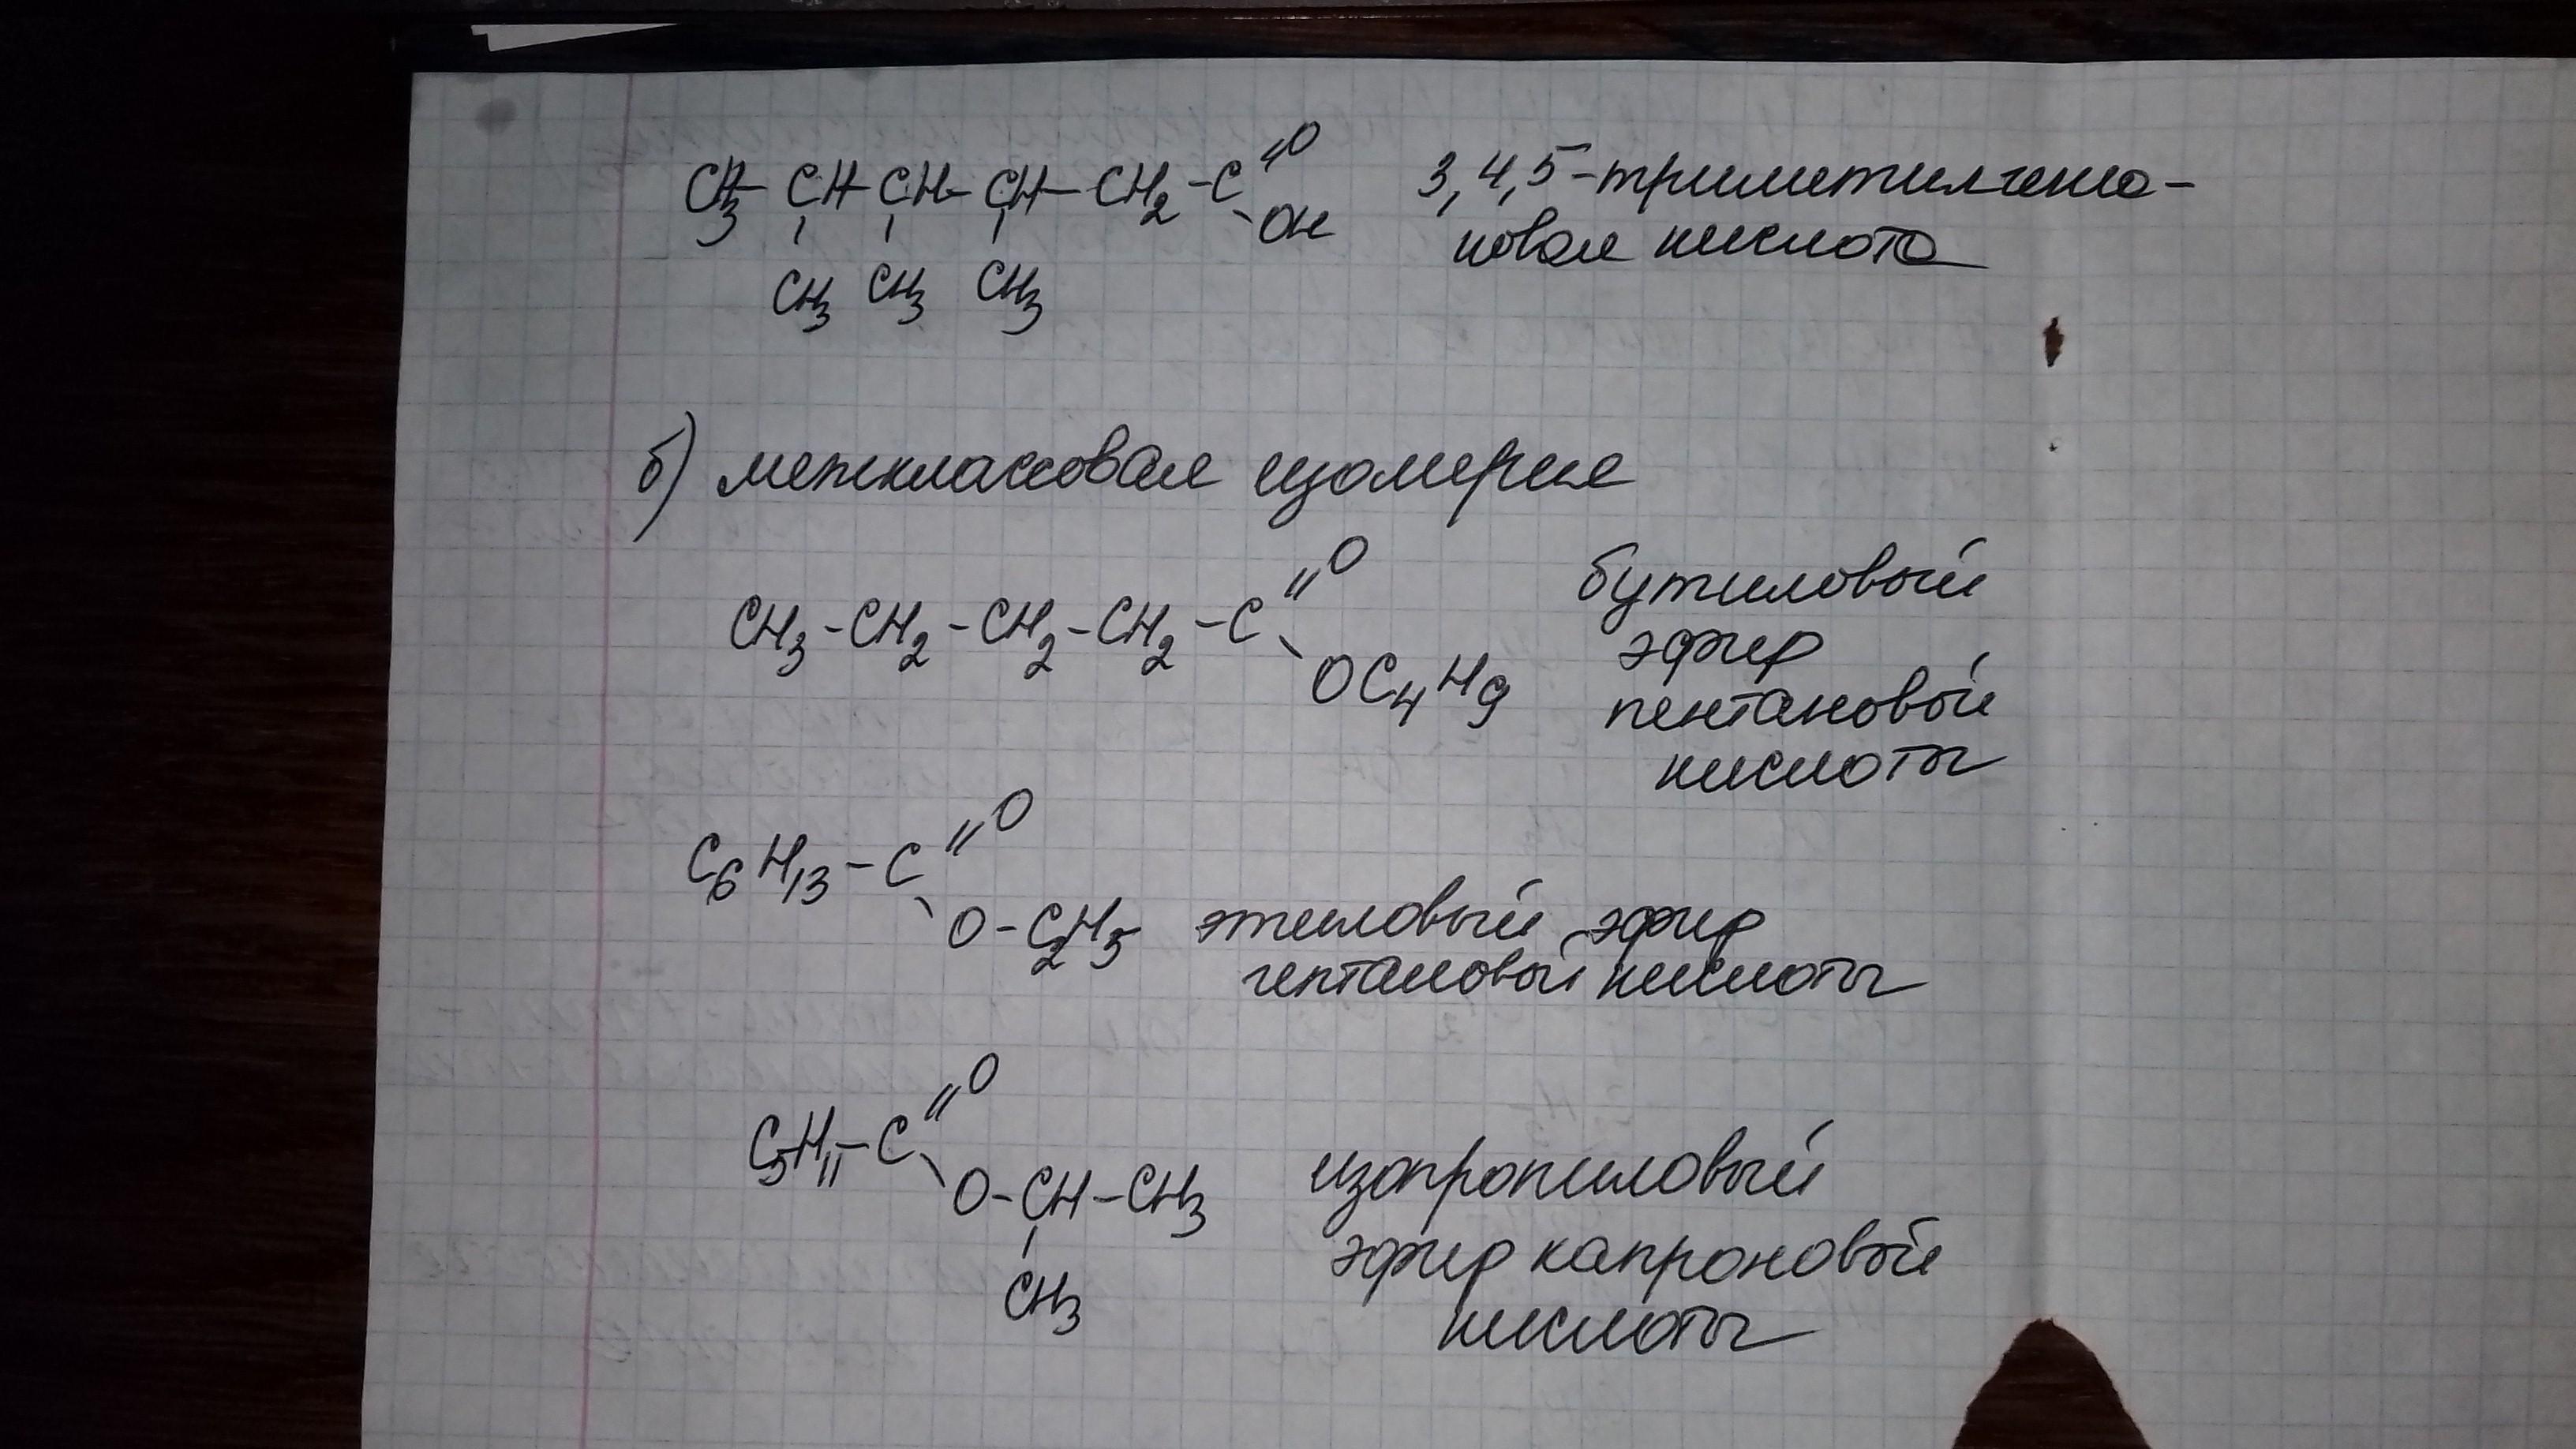 CH3-CH-CH-CH-CH2-C=O 3,4,5-триметилгекса-
OH новая кислота
CH3 CH3 CH3
б) межклассовая изомерия
CH3-CH2-CH2-CH2-C=O
OC4H9
бутиловый
эфир
пентановой
кислоты
C6H13-C=O
O-C2H5 этиловый эфир
гептановой кислоты
C5H11-C=O
O-CH-CH3
CH3
изопропиловый
эфир капроновой
кислоты